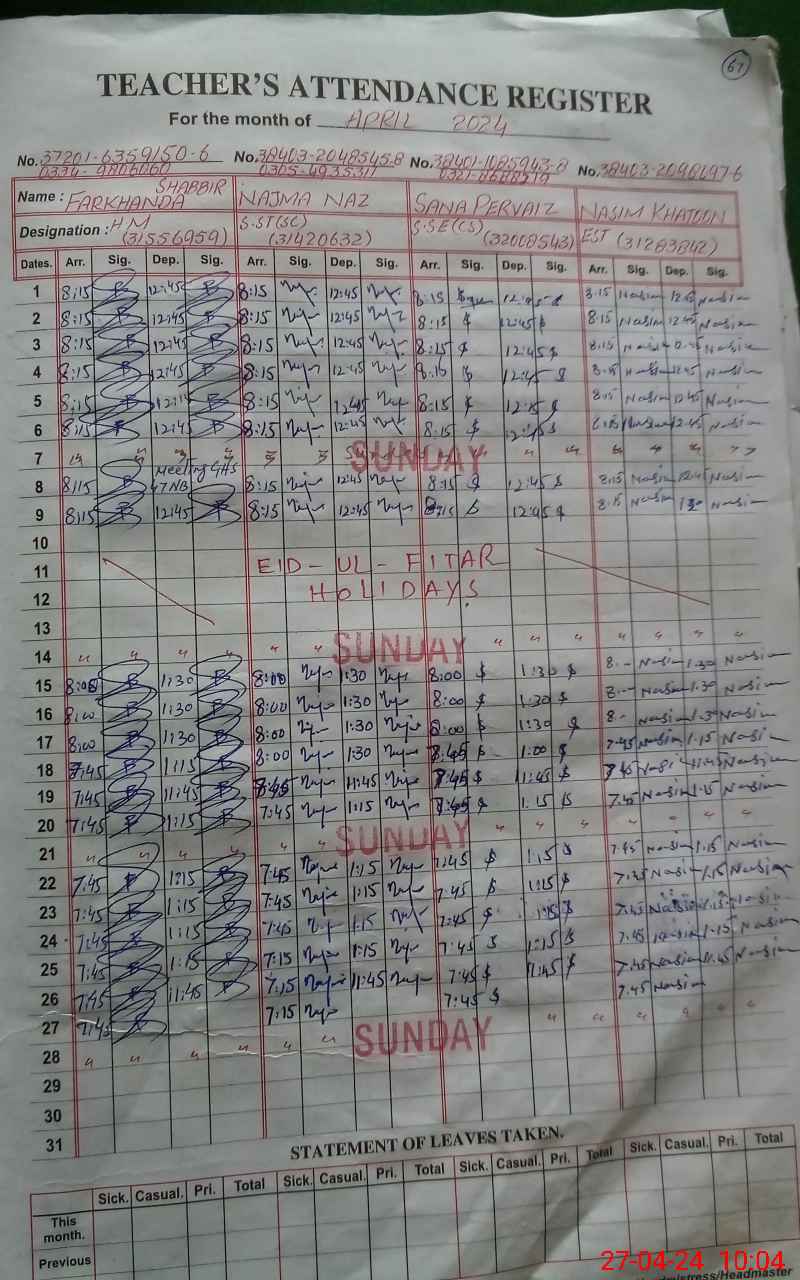 67
TEACHER'S ATTENDANCE REGISTER
For the month of APRIL 2024
No. 37201-6359150-6 No. 38403-2048545-8 No. 38401-1085943-8 No. 38403-2096197-6
0334-9806060 0305-4935317
Name : FARKHANDA SHABBIR NAJMA NAZ SANA PERVAIZ NASIM KHATOON
Designation : HM (31556959) S.ST(SC) (31420632) S.SE(CS) (32008543) EST (31283842)
Dates. Arr. Sig. Dep. Sig. Arr. Sig. Dep. Sig. Arr. Sig. Dep. Sig. Arr. Sig. Dep. Sig.
1 8:15 12:45 8:15 12:45 8:15 12:45 8:15 Nasim 12:45 Nasim
2 8:15 12:45 8:15 12:45 8:15 12:45 8:15 Nasim 12:45 Nasim
3 8:15 12:45 8:15 12:45 8:15 12:45 8:15 Nasim Nasim
4 8:15 12:45 8:15 12:45 8:15 12:45 8:15 Nasim 12:45 Nasim
5 8:15 8:15 12:45 8:15 12:45 8:15 Nasim 12:45 Nasim
6 8:15 12:45 8:15 12:45 8:15 12:45 Nasim 12:45 Nasim
7 SUNDAY
8 8:15 Meeting GHS 47NB 8:15 12:45 8:15 12:45 8:15 Nasim 12:45 Nasim
9 8:15 12:45 8:15 12:45 8:15 12:45 8:15 Nasim Nasim
10
11 EID-UL-FITAR
12 HOLIDAYS
13
14 SUNDAY
15 8:00 1:30 8:00 1:30 8:00 1:30 8:- Nasim 1:30 Nasim
16 8:00 1:30 8:00 1:30 8:00 1:30 8:- Nasim 1:30 Nasim
17 8:00 1:30 8:00 1:30 8:00 1:30 8:- Nasim 1:30 Nasim
18 7:45 1:15 8:00 1:30 1:00 7:45 Nasim 1:15 Nasim
19 7:45 11:45 11:45 7:45 11:45 7:45 Nasim 11:45 Nasim
20 7:45 1:15 7:45 1:15 7:45 1:15 7:45 Nasim 1:15 Nasim
21 SUNDAY
22 7:45 1:15 7:45 1:15 7:45 1:15 7:45 Nasim 1:15 Nasim
23 7:45 1:15 7:45 1:15 7:45 1:15 7:45 Nasim 1:15 Nasim
24 7:45 1:15 7:45 1:15 7:45 1:15 7:45 Nasim 1:15 Nasim
25 7:45 1:15 7:15 1:15 7:45 1:15 7:45 Nasim 1:15 Nasim
26 7:45 11:45 7:15 11:45 7:45 11:45 7:45 Nasim 11:45 Nasim
27 7:45 7:15 7:45 7:45 Nasim
28 SUNDAY
29
30
31
STATEMENT OF LEAVES TAKEN.
Sick. Casual. Pri. Total Sick. Casual. Pri. Total Sick. Casual. Pri. Total Sick. Casual. Pri. Total
This month.
Previous
27-04-24 10:04
/Headmaster